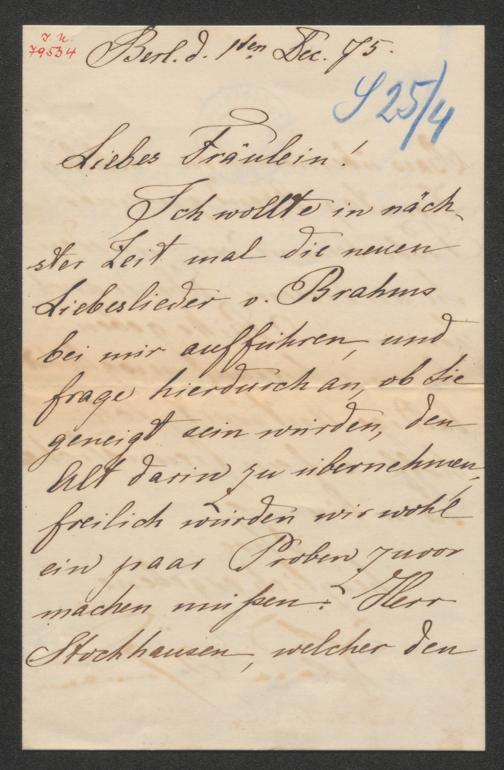 J. N.
79534
Berl. d. 1ten Dec. 75.
S 25/4
Liebes Fräulein!
Ich wollte in näch-
ster Zeit mal die neuen
Liebeslieder v. Brahms
bei mir aufführen, und
frage hierdurch an, ob Sie
geneigt sein würden, den
Alt darin zu übernehmen,
freilich würden wir wohl
ein paar Proben zuvor
machen müßen. Herr
Stockhausen, welcher den